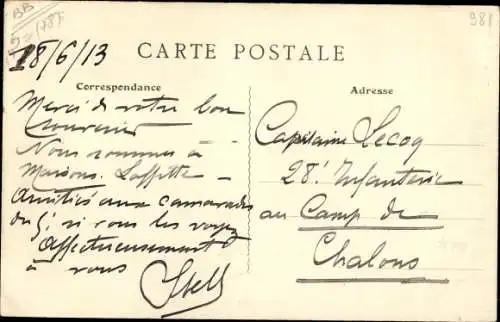 BB
981
18/6/13
CARTE POSTALE
Correspondance
Adresse
Merci de votre bon
souvenir
Nous sommes à
Maisons Laffitte –
Amitiés aux camarades
du si vous les voyez
Affectueusement
à vous
Capitaine Lecoq
28e Infanterie
au Camp de
Chalons